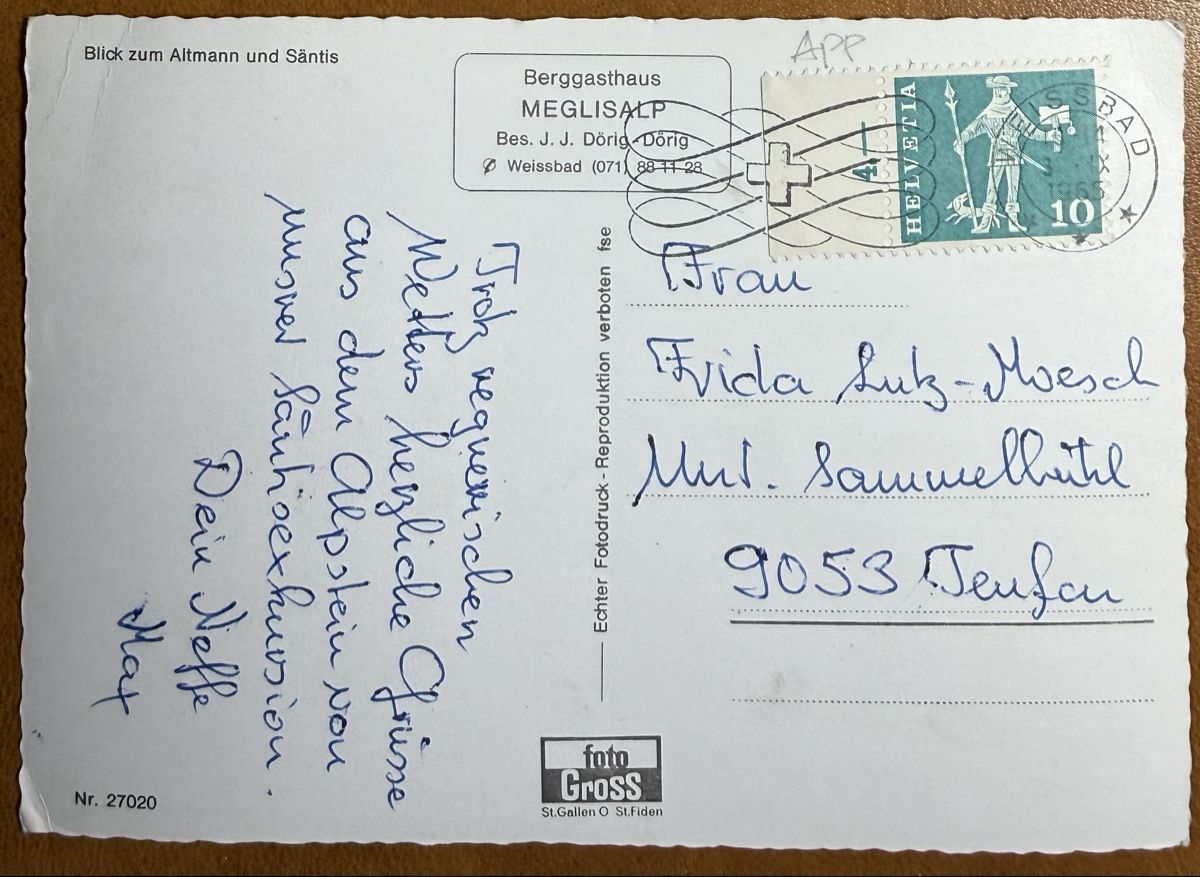 Blick zum Altmann und Säntis
Berggasthaus
MEGLISALP
Bes. J. J. Dörig-Dörig
Weissbad (071) 88 11 28
APP
4.—
HELVETIA
10
WEISSBAD
IX
1965
Trotz regnerischen
Wetters herzliche Grüsse
aus dem Alpstein von
unsrer Säntisexkursion.
Dein Neffe
Max
Echter Fotodruck - Reproduktion verboten fse
Frau
Frida Lutz-Moesch
Unt. Sammelbühl
9053 Teufen
foto
GROSS
St.Gallen O St.Fiden
Nr. 27020